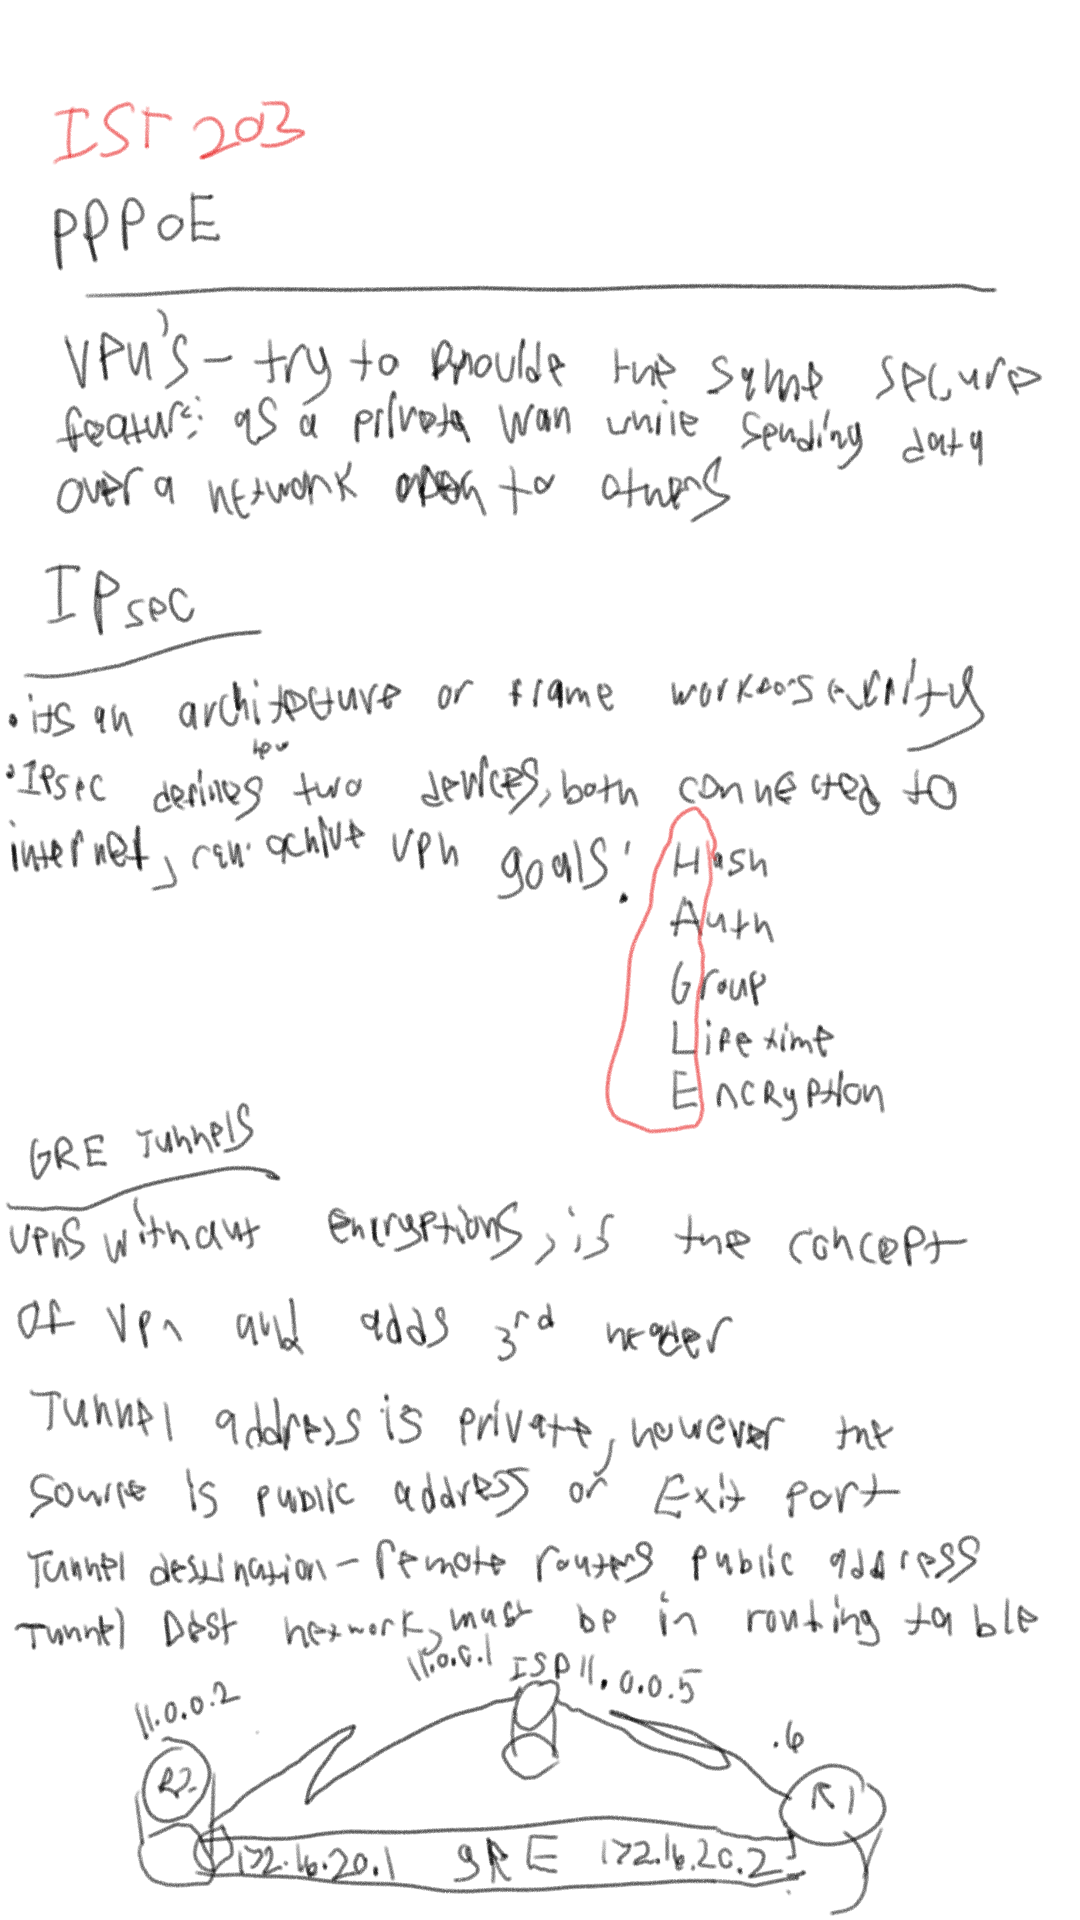 IST 203
PPPoE
VPN's - try to provide the same secure
features as a private wan while sending data
over a network open to others
IPsec
• its an architecture or frame work for security
how
• IPsec defines two devices, both connected to
internet, can achive vpn goals: Hash
Auth
Group
Lifetime
Encryption
GRE Tunnels
VPNs without encryptions, is the concept
of Vpn and adds 3rd header
Tunnel address is private, however the
source is public address or Exit port
Tunnel destination - remote routers public address
Tunnel Dest network, must be in routing table
11.0.0.1 ISP 11.0.0.5
11.0.0.2
.6
R2
R1
172.16.20.1 GRE 172.16.20.2